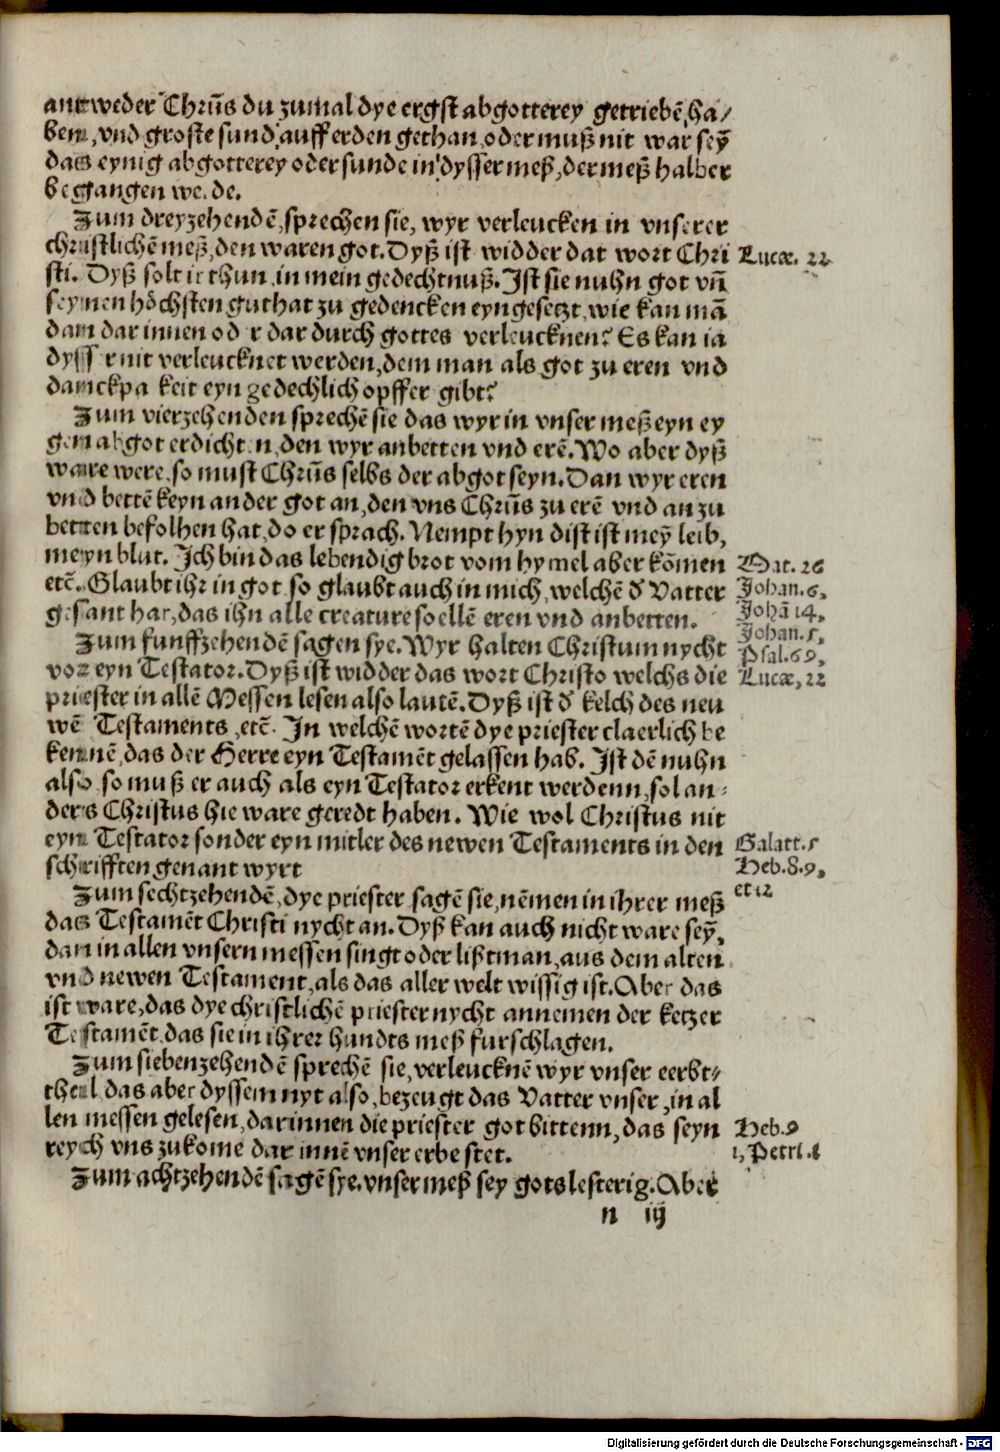 antweder Chrūs du zumal dye ergst abgotterey getriebē, ha/
ben, vnd groste sund auff erden gethan, oder muß nit war seȳ
das eynig abgotterey oder sunde in dysser meß, der meß halber
begangen werde.
Zum dreyzehendē, sprechen sie, wyr verleucken in vnserer
christlichē meß, den waren got. Dyß ist widder dat wort Chri Lucæ. 22
sti. Dyß solt ir thun in mein gedechtnuß. Ist sie nuhn got vn̄
seynen höchsten guthat zu gedencken eyngesetzt, wie kan mā
dan dar innen oder dar durch gottes verleucknen? Es kan ia
dysser nit verleucknet werden, dem man als got zu eren vnd
danckpa keit eyn gedechlich opffer gibt?
Zum vierzehenden sprechē sie das wyr in vnser meß eyn ey
gen abgot erdichten, den wyr anbetten vnd erē. Wo aber dyß
ware were, so must Chrūs selbs der abgot seyn. Dan wyr eren
vnd bettē keyn ander got an, den vns Chrūs zu erē vnd an zu
betten befolhen hat, do er sprach. Nempt hyn dist ist meȳ leib,
meyn blut. Ich bin das lebendig brot vom hymel aber kōmen Mat. 26
etc̄. Glaubt ihr in got so glaubt auch in mich, welchē d̄ Vatter Johan. 6,
gesant hat, das ihn alle creature soellē eren vnd anbetten. Johā 14,
Johan. 5,
Zum funffzehendē sagen sye. Wyr halten Christum nycht Psal. 69,
vor eyn Testator. Dyß ist widder das wort Christo welchs die Lucæ, 22
priester in allē Messen lesen also lautē. Dyß ist d̄ kelch des neu
wē Testaments, etc̄. In welchē wortē dye priester claerlich be
kennē, das der Herre eyn Testamēt gelassen hab. Ist dē nuhn
also so muß er auch als eyn Testator erkent werdenn, sol an-
ders Christus hie ware geredt haben. Wie wol Christus nit
eyn Testator sonder eyn mitler des newen Testaments in den Galatt. 5
schrifften genant wyrt Heb. 8. 9,
et 12
Zum sechtzehendē, dye priester sagē sie, nēmen in ihrer meß
das Testamēt Christi nycht an. Dyß kan auch nicht ware seȳ,
dan in allen vnsern messen singt oder lißtman, aus dem alten
vnd newen Testament, als das aller welt wissig ist. Aber das
ist ware, das dye christlichē priester nycht annemen der ketzer
Testamēt, das sie in ihrer hundts meß furschlagen.
Zum siebenzehendē sprechē sie, verleucknē wyr vnser eerbt/
theil das aber dyssem nyt also, bezeugt das Vatter vnser, in al
len messen gelesen, darinnen die priester got bittenn, das seyn Heb. 9
reych vns zukome dar innē vnser erbe stet. 1, Petri. 1
Zum achtzehendē sagē sye. vnser meß sey gotslesterig. Aber
n iij
Digitalisierung gefördert durch die Deutsche Forschungsgemeinschaft - DFG